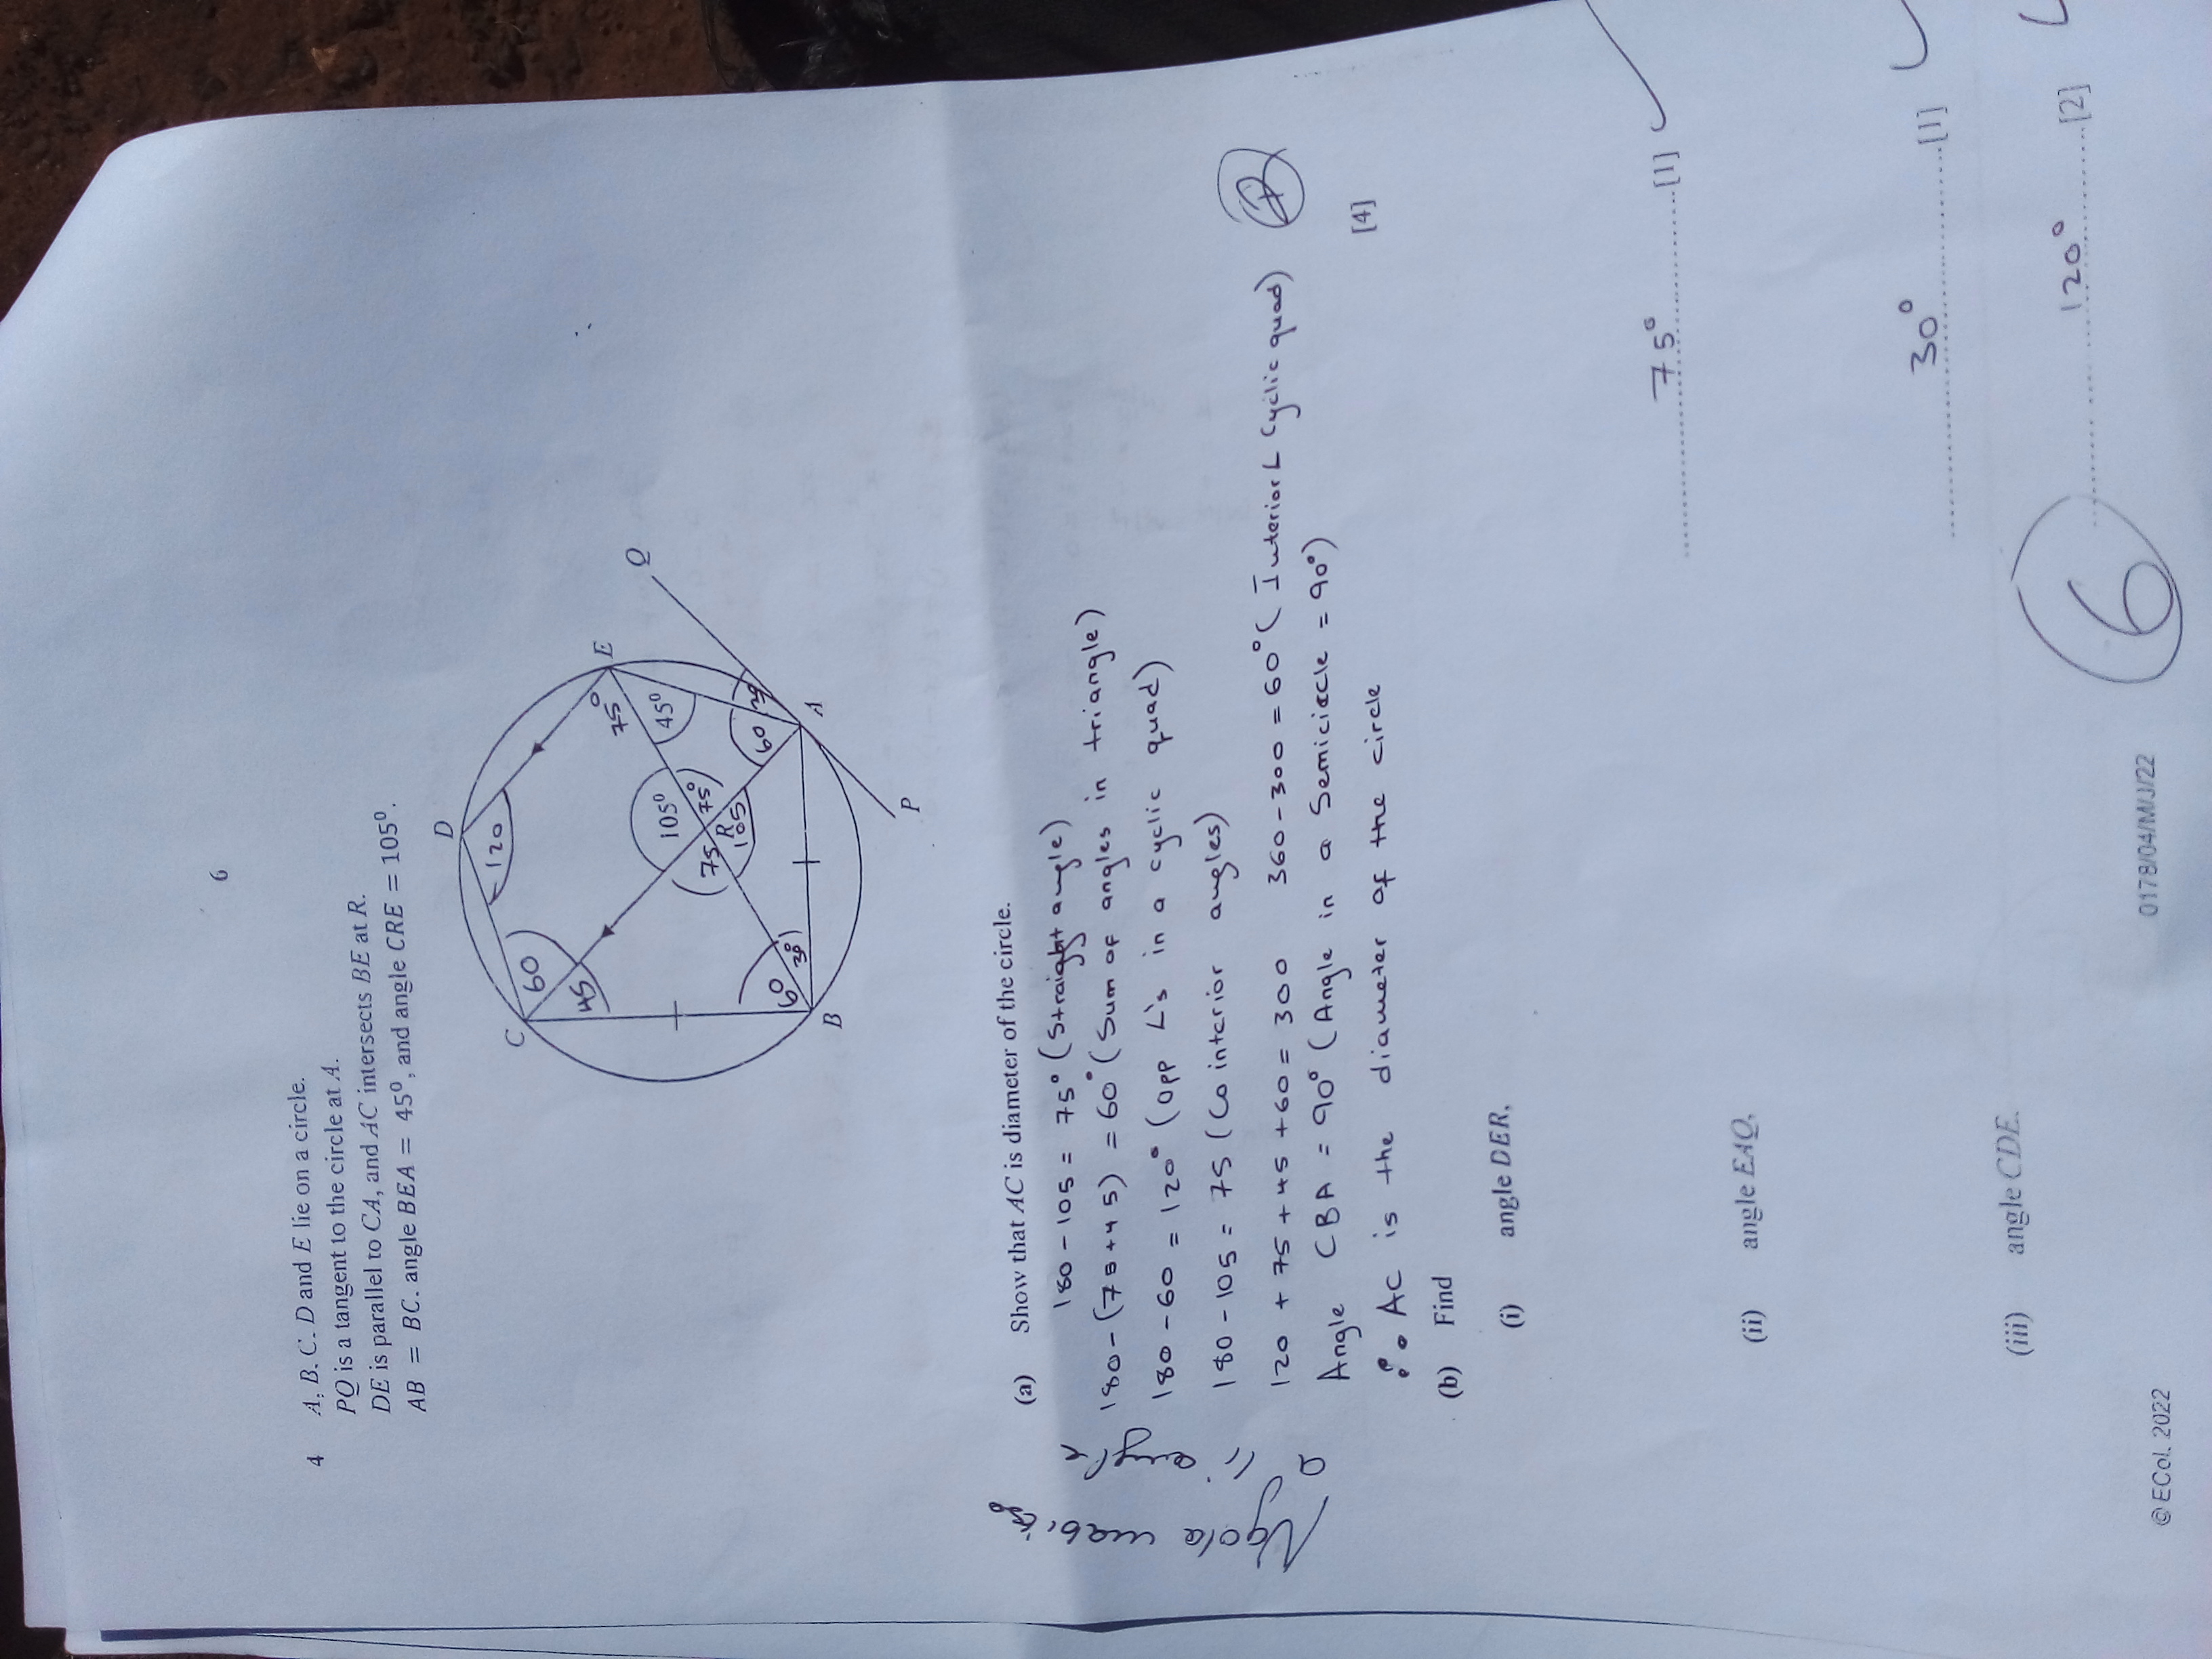 6
4 A, B, C, D and E lie on a circle.
PQ is a tangent to the circle at A.
DE is parallel to CA, and AC intersects BE at R.
AB = BC, angle BEA = 45⁰, and angle CRE = 105⁰.
D
120
C
60
45
75°
E
Q
105⁰
45⁰
75
75°
R
105
60
30
60
30°
B
A
P
(a) Show that AC is diameter of the circle.
180 - 105 = 75° (Straight angle)
180 - (75 + 45) = 60° (Sum of angles in triangle)
180 - 60 = 120° (opp L's in a cyclic quad)
180 - 105 = 75 (Co interior angles)
120 + 75 + 45 + 60 = 300 360 - 300 = 60° (Interior L Cyclic quad)
Angle CBA = 90° (Angle in a Semicircle = 90°)
∴ AC is the diameter of the circle
[4]
(b) Find
(i) angle DER,
75° [1]
(ii) angle EAQ,
30° [1]
(iii) angle CDE.
120° [2]
6
© ECol. 2022
0178/04/M/J/22